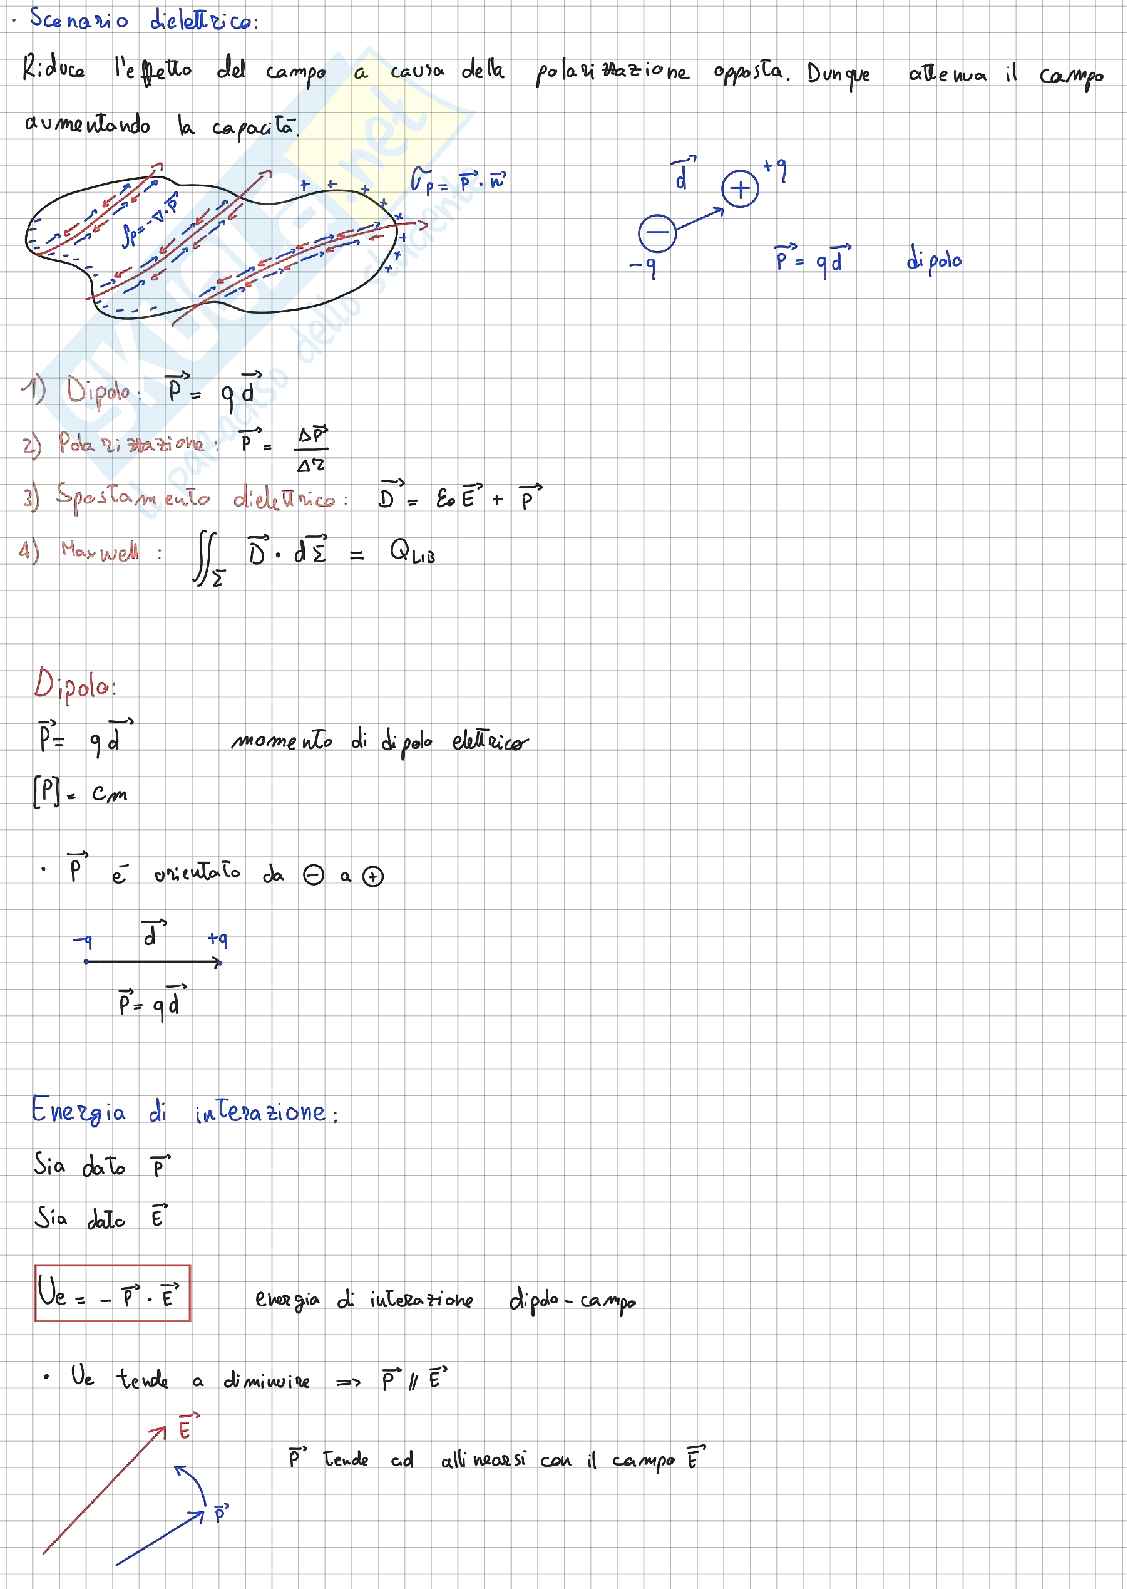 · Scenario dielettrico:
Riduce l'effetto del campo a causa della polarizzazione opposta. Dunque attenua il campo
aumentando la capacità.
σp = P⃗ · n⃗
ρp = -∇·P⃗
d⃗ +q
−
+
-q
P⃗ = qd⃗ dipolo
1) Dipolo: P⃗ = q d⃗
2) Polarizzazione: P⃗ = ΔP⃗ / Δτ
3) Spostamento dielettrico: D⃗ = ε₀ E⃗ + P⃗
4) Maxwell: ∬_Σ D⃗ · dΣ⃗ = Q_LIB
Dipolo:
P⃗ = qd⃗ momento di dipolo elettrico
[P] = Cm
· P⃗ è orientato da ⊖ a ⊕
-q d⃗ +q
P⃗ = qd⃗
Energia di interazione:
Sia dato P⃗
Sia dato E⃗
Ue = - P⃗ · E⃗ energia di interazione dipolo-campo
· Ue tende a diminuire => P⃗ // E⃗
E⃗
P⃗ tende ad allinearsi con il campo E⃗
P⃗
SKUOLA.net
il paradiso dello studente